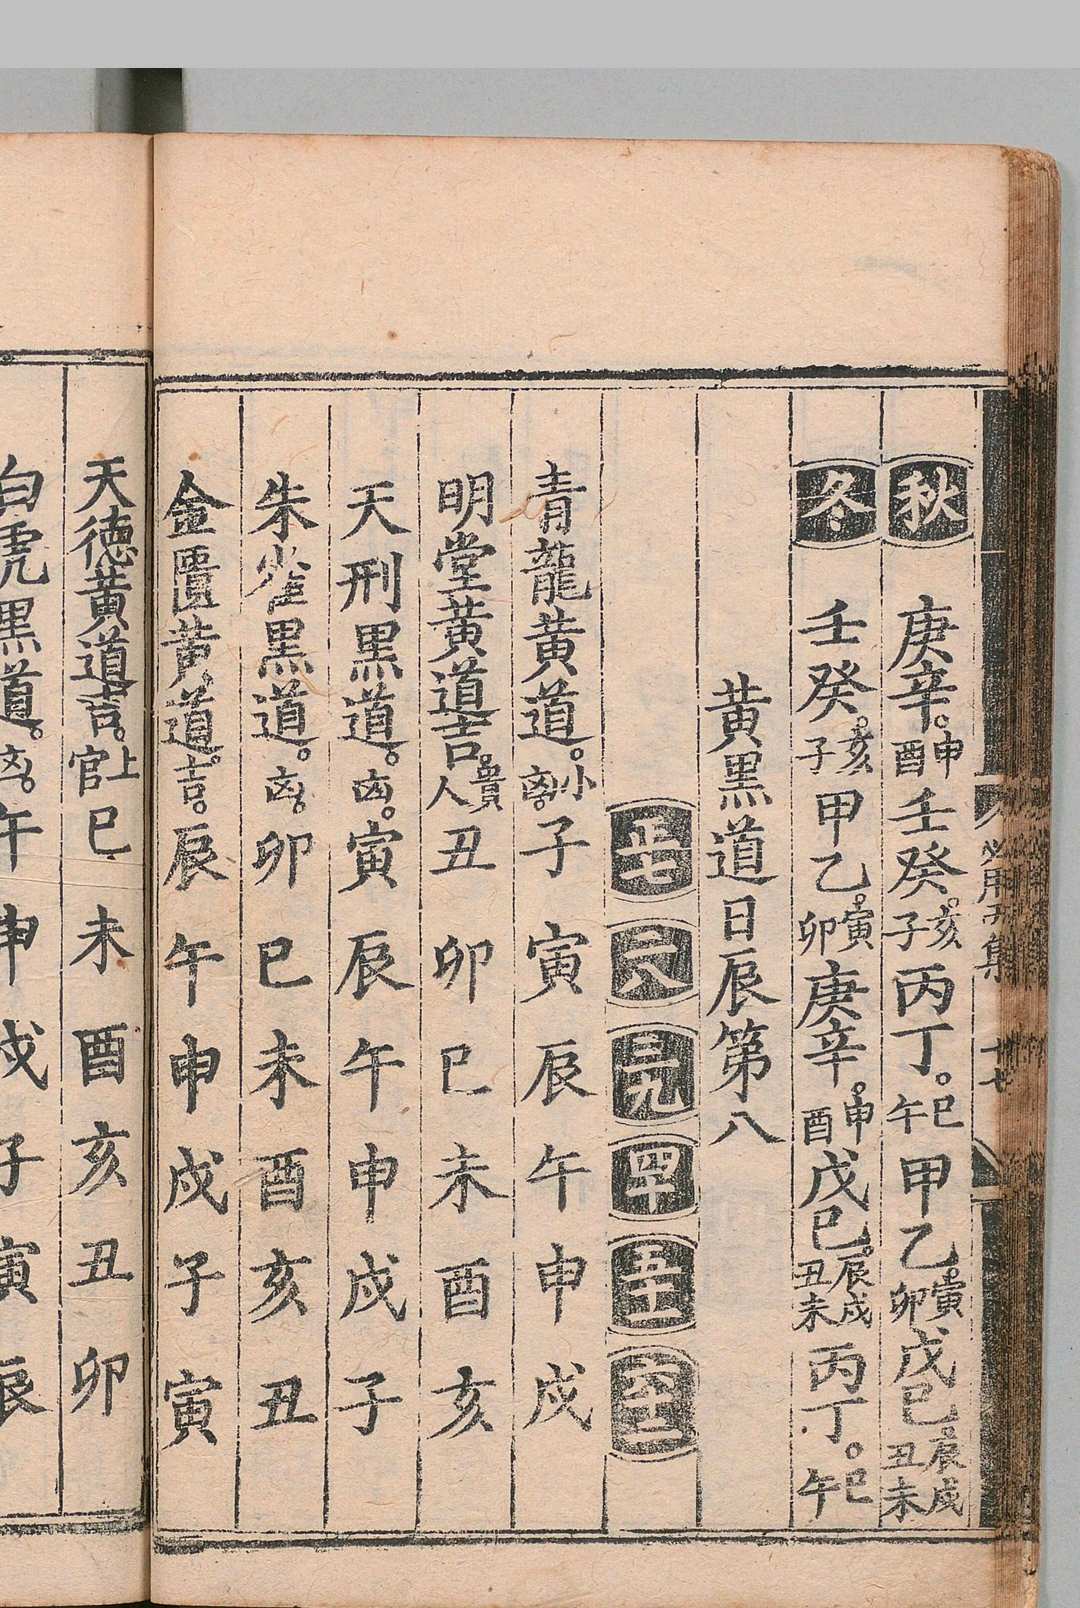 秋 庚辛申酉 壬癸亥子 丙丁巳午 甲乙寅卯 戊己辰戌丑未
冬 壬癸亥子 甲乙寅卯 庚辛申酉 戊己辰戌丑未 丙丁巳午
黄黒道日辰第八
正七 二八 三九 四十 五十一 六十二
青龍黄道小㐫 子 寅 辰 午 申 戌
明堂黄道吉貴人 丑 卯 巳 未 酉 亥
天刑黒道㐫 寅 辰 午 申 戌 子
朱雀黒道㐫 卯 巳 未 酉 亥 丑
金匱黄道吉 辰 午 申 戌 子 寅
天徳黄道吉上官 巳 未 酉 亥 丑 卯
白虎黒道㐫 午 申 戌 子 寅 辰